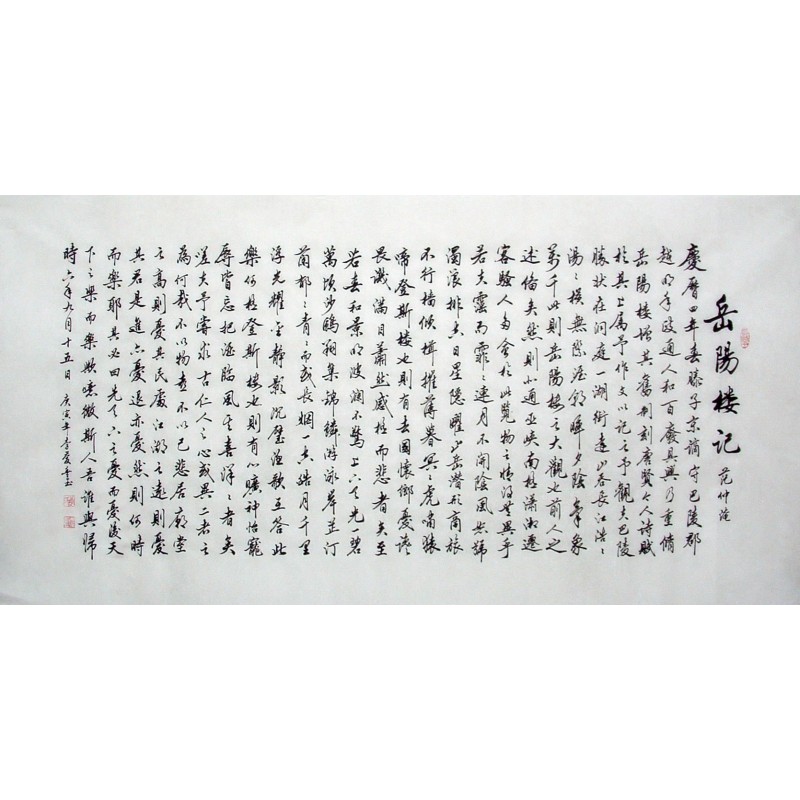 岳陽楼记 范仲淹
慶曆四年春滕子京謫守巴陵郡
越明年政通人和百廢具興乃重脩
岳陽楼增其舊制刻唐賢今人詩賦
於其上属予作文以記之予觀夫巴陵
勝状在洞庭一湖銜遠山吞長江浩〻
湯〻橫無際涯朝暉夕陰氣象
萬千此則岳陽楼之大觀也前人之
述備矣然則北通巫峡南極瀟湘遷
客騷人多會於此覽物之情得無異乎
若夫霪雨霏〻連月不開陰風怒號
濁浪排空日星隱曜山岳潜形商旅
不行檣傾楫摧薄暮冥〻虎嘯猿
啼登斯楼也則有去國懷鄉憂讒
畏譏滿目蕭然感極而悲者矣至
若春和景明波瀾不驚上下天光一碧
萬頃沙鷗翔集錦鱗游泳岸芷汀
蘭郁〻青〻而或長烟一空皓月千里
浮光耀金静影沉璧漁歌互答此
樂何極登斯楼也則有心曠神怡寵
辱皆忘把酒臨風其喜洋〻者矣
嗟夫予嘗求古仁人之心或異二者之
為何哉不以物喜不以己悲居廟堂
之高則憂其民處江湖之遠則憂
其君是進亦憂退亦憂然則何時
而樂耶其必曰先天下之憂而憂後天
下之樂而樂歟噫微斯人吾誰與歸
時六年九月十五日 庚寅年李